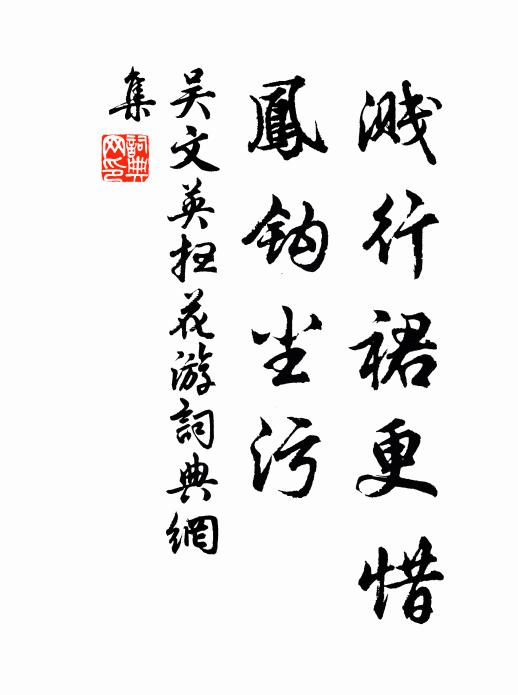 溅行裙更惜
鳳鈎尘污
吴文英扫花游詞典網
集
詞典网印